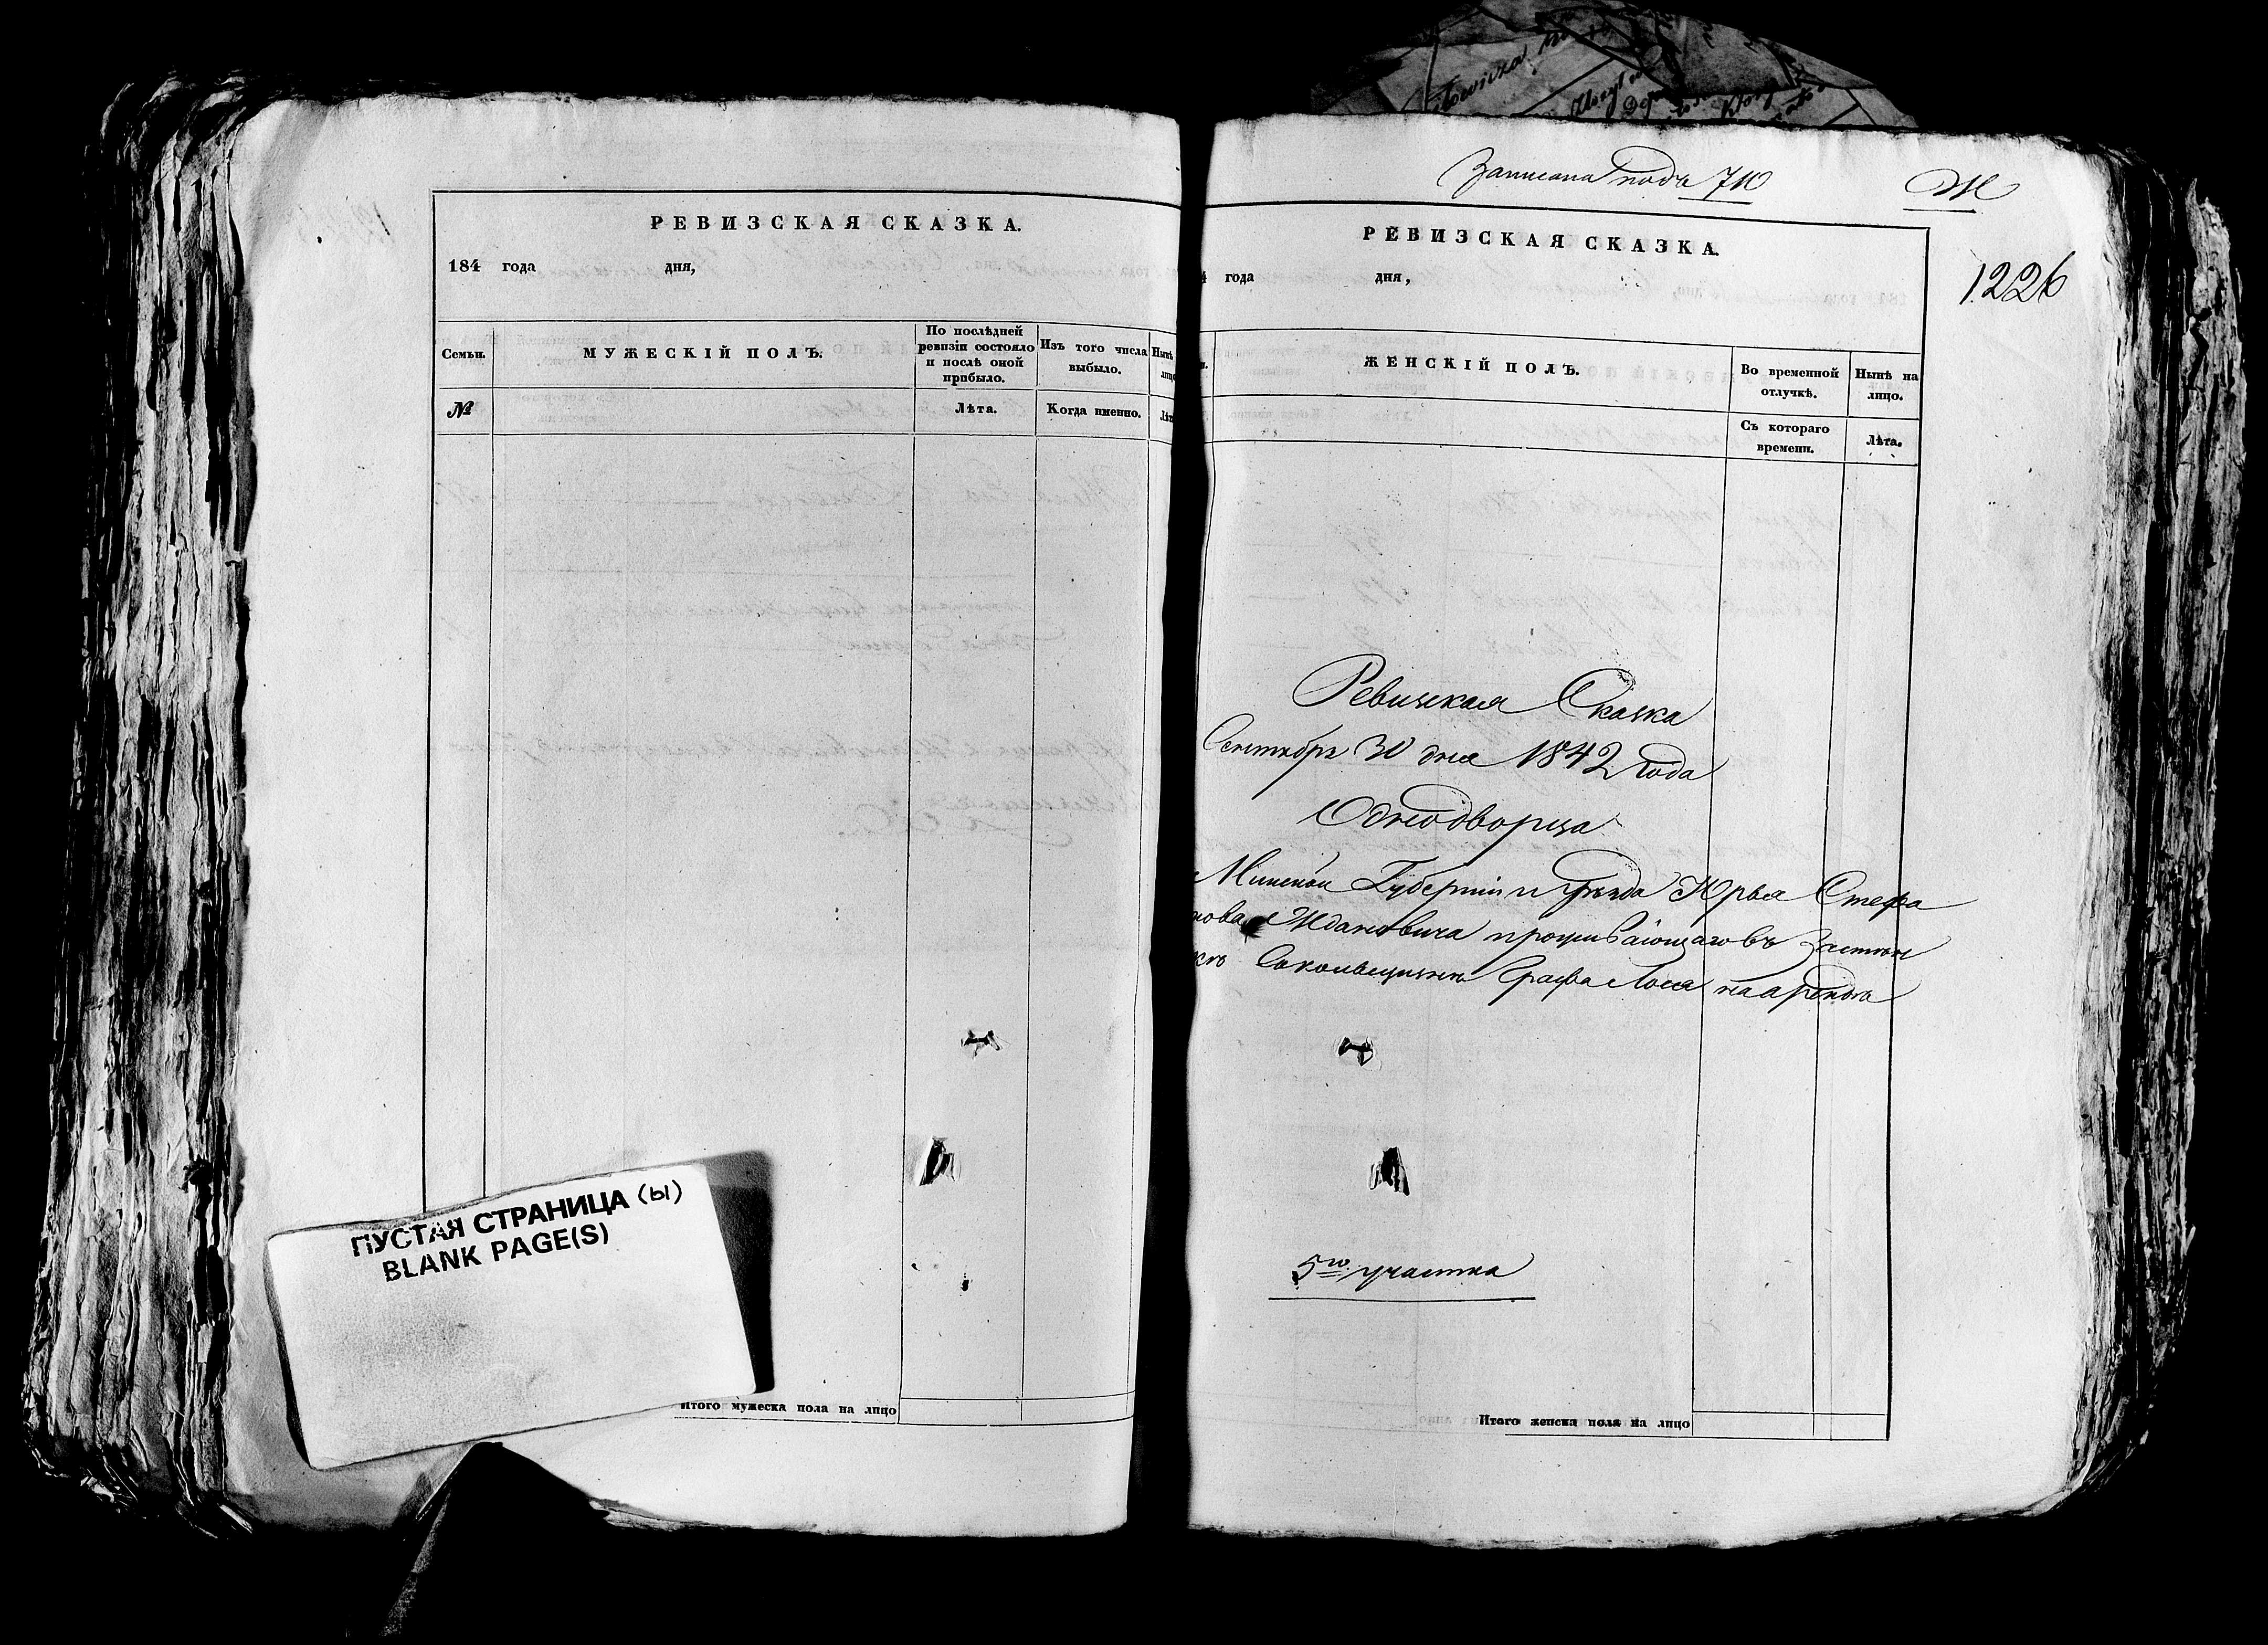 РЕВИЗСКАЯ СКАЗКА.
184 года дня,
Семьи.
МУЖЕСКІЙ ПОЛЪ.
По послѣдней
ревизіи состояло
и послѣ оной
прибыло.
Изъ того числа
выбыло.
Нынѣ
№
Лѣта.
Когда именно.
ПУСТАЯ СТРАНИЦА (ы)
BLANK PAGE(S)
Итого мужеска пола на лицо
Записана подъ 710
Ж
1226
РЕВИЗСКАЯ СКАЗКА.
года дня,
ЖЕНСКІЙ ПОЛЪ.
Во временной
отлучкѣ.
Нынѣ на
лицо.
Съ котораго
времени.
Лѣта.
Ревизская Сказка
Сентября 30 дня 1842 года
Однодворца
Минской Губерніи и уѣзда Юрья Стефа
нова Ждановича проживающаго въ Застѣн
кѣ Графа на арендѣ
5го участка
Итого женска пола на лицо